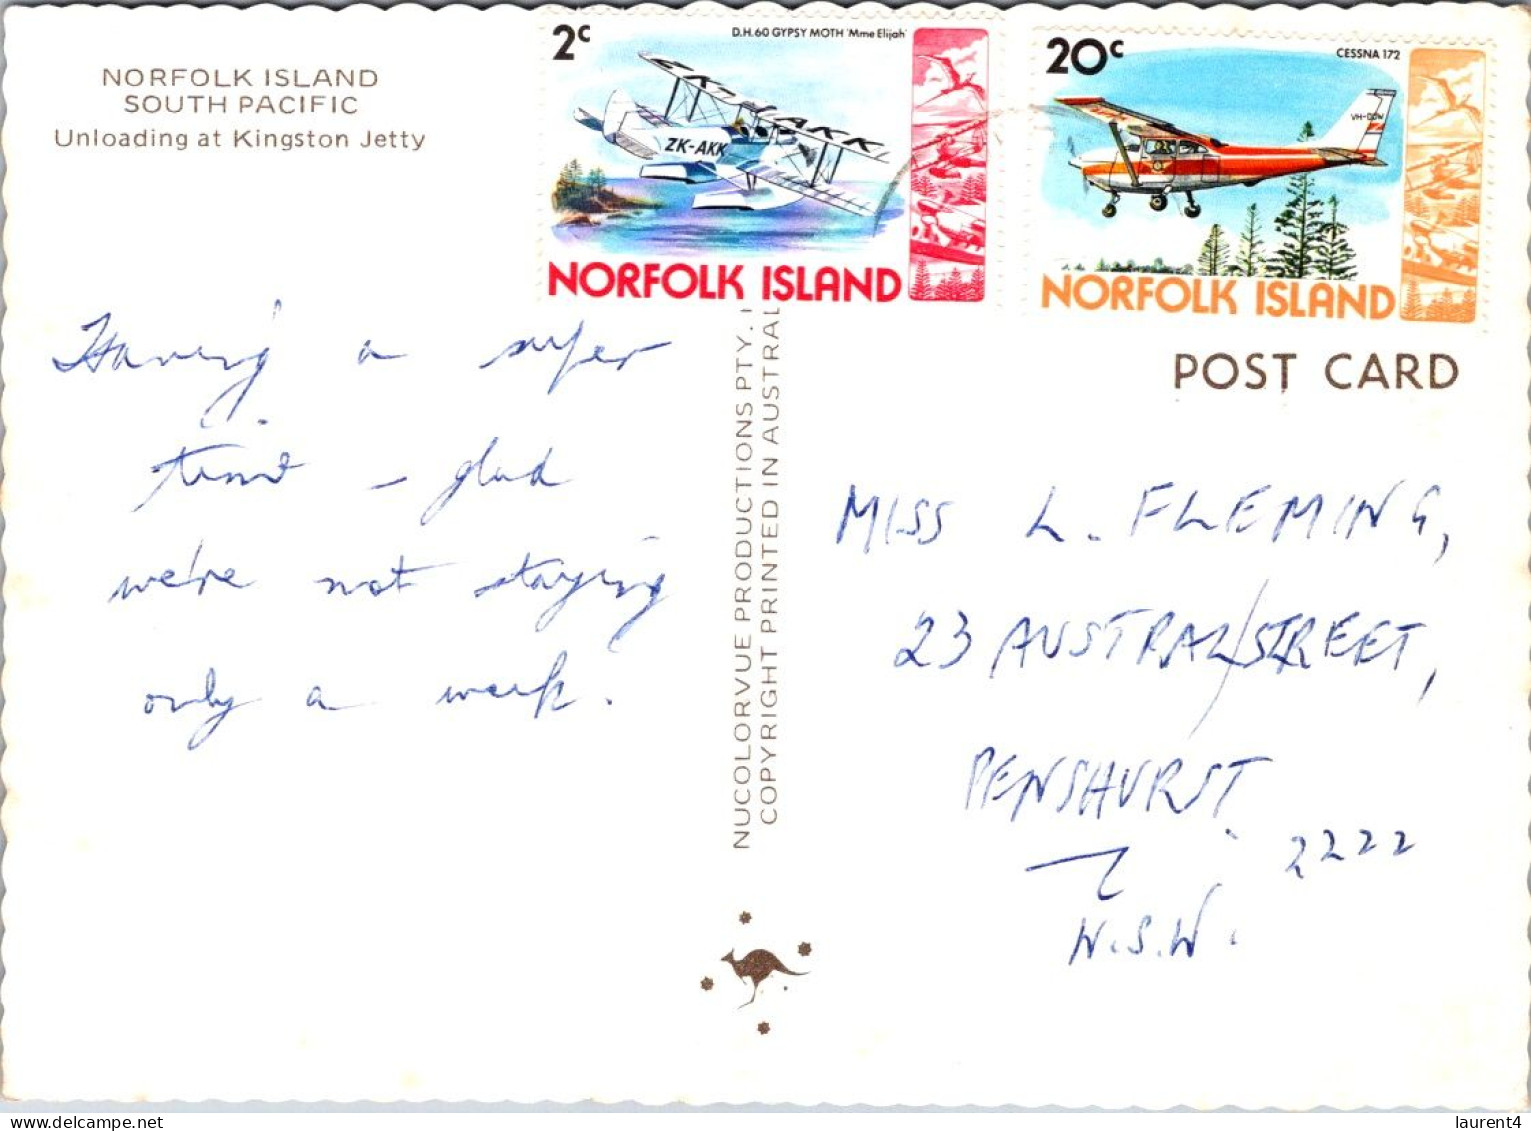 NORFOLK ISLAND
SOUTH PACIFIC
Unloading at Kingston Jetty
2c
D.H.60 GYPSY MOTH 'Mme Elijah'
ZK-AKK
NORFOLK ISLAND
20c
CESSNA 172
NORFOLK ISLAND
POST CARD
Having a super
time – glad
we're not staying
only a week.
NUCOLORVUE PRODUCTIONS PTY.
COPYRIGHT PRINTED IN AUSTRAL
MISS L. FLEMING,
23 AUSTRAL/STREET,
PENSHURST.
2222
N.S.W.
laurent4